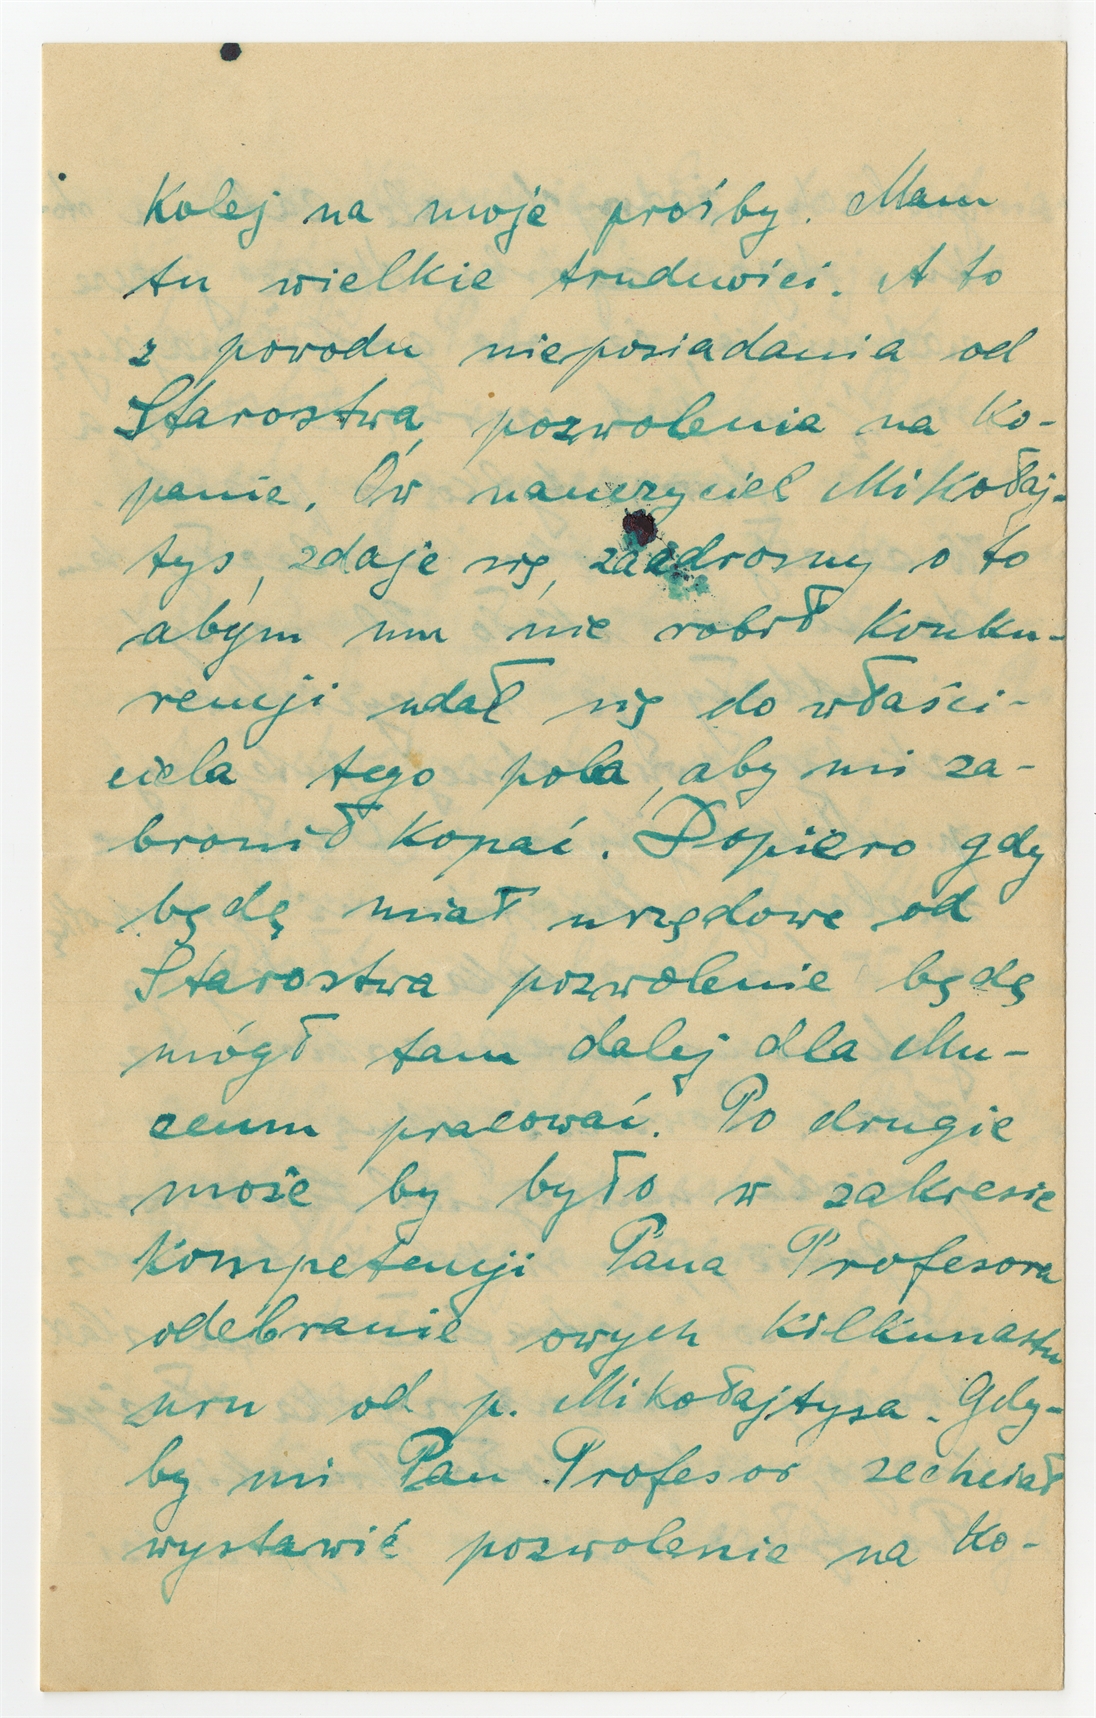 Kolej na moje prośby. Mam
tu wielkie trudności. A to
z powodu nieposiadania od
Starostwa pozwolenia na ko-
panie. Ów nauczyciel Mikołaj-
tys, zdaje się, zazdrosny o to
abym mu nie robił konku-
rencji udał się do właści-
ciela tego pola, aby mi za-
bronił kopać. Dopiero gdy
będę miał urzędowe od
Starostwa pozwolenie będę
mógł tam dalej dla Mu-
zeum pracować. Po drugie
może by było w zakresie
kompetencji Pana Profesora
odebranie owych kilkunastu
urn od p. Mikołajtysa. Gdy-
by mi Pan Profesor zechciał
wystawić pozwolenie na ko-